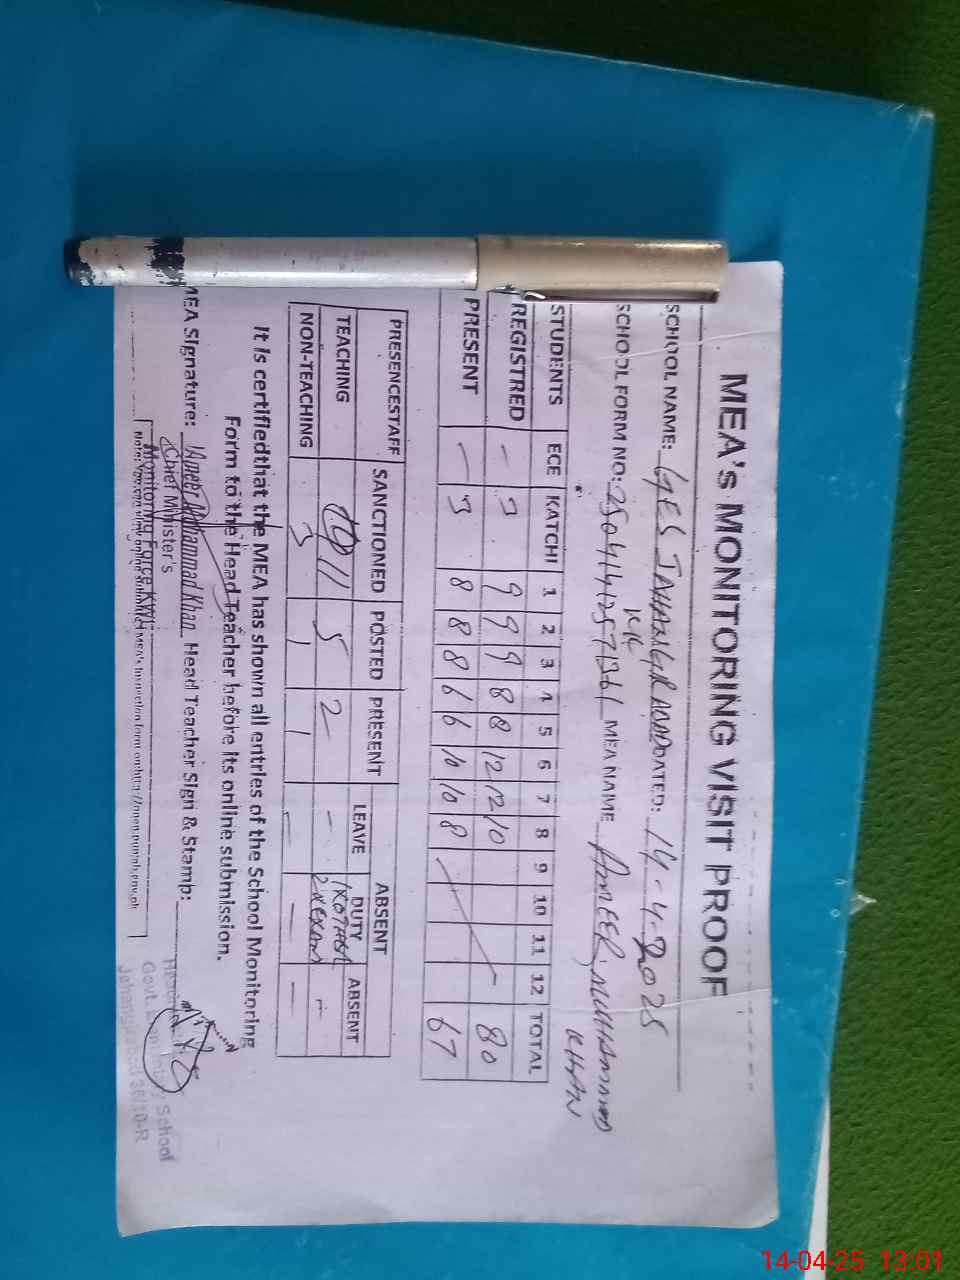 MEA's MONITORING VISIT PROOF
SCHOOL NAME: GES JAHANGIRABAD DATED: 14-4-2025
SCHOOL FORM NO: MEA NAME AMEER MUHAMMAD KHAN
STUDENTS ECE KATCHI 1 2 3 4 5 6 7 8 9 10 11 12 TOTAL
REGISTRED - 3 9 9 9 8 8 12 12 10 80
PRESENT - 3 8 8 8 6 6 10 10 8 67
PRESENCESTAFF SANCTIONED POSTED PRESENT ABSENT
LEAVE DUTY ABSENT
TEACHING 11 5 2 - -
NON-TEACHING 3 1 1 - - -
It is certifiedthat the MEA has shown all entries of the School Monitoring
Form to the Head Teacher before its online submission.
MEA Signature: Ameer Muhammad Khan Head Teacher Sign & Stamp:
Chief Minister's
Monitoring Force KWL
Note: You can view online submitted MEA's inspection form on:http://open.punjab.gov.pk
Govt. Elementary School
Jahangirabad 36/10-R
14-04-25 13:01